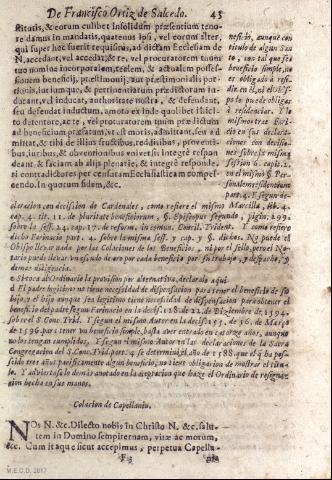 De Francisco Ortiz de Salcedo. 45
stitutis, & eorum cuilibet insolidum præsentium teno
re damus in mandatis, quatenus ipsi, vel eorum alter,
qui super hoc fuerit requisitus, ad dictam Ecclesiam de
N. accedant, vel accedat, & te, vel procuratorem tuum
tuo nomine incorporatum, realem, & actualem posses
sionem beneficij, præstimonij, aut præstimonialis por
tionis, iuriumque, & pertinentiarum prædictorum in-
ducant, vel inducat, authoritate nostra, & defendant,
seu defendat inductum, amoto ex inde quolibet illici-
to detentore, ac te, vel procuratorem tuum prædictum
ad beneficium præfatum, vt est moris, admittant, seu ad
mittat, & tibi de illius fructibus, redditibus, prouenti-
bus, iuribus, & obuentionibus vniuersis integrè respon
deant, & faciant ab alijs plenarie, & integrè responde.
ri contradictores per censuram Ecclesiasticam compel
lendo. In quorum fidem, &c.
neficio, aunque con
titulo de algun San
to, con tal que sea
beneficio simple, no
es obligado à resi-
dir en èl, ni el Obis
po le puede obligar
à residenciar. Y lo
mismo trae Farinacio
en sus declara-
ciones con decisio-
nes sobre la misma
session 6. capit. 2.
en el mismo §. Per-
sonaliter residentium
part. 4. Segun de-
claracion con decision de Cardenales, como refiere el mismo Marcilla, lib. 4.
cap. 4. tit. 11. de pluritate beneficiorum, §. Episcopus segundo, pagin. 299.
sobre la sess. 24. cap. 17. de reform. in commu. Concil. Trident. Y como refiere
do Farinacio part. 4. sobre la misma sess. 7. cap. 5. §. dichos. No puede el
Obispo llevar nada por las Colaciones de los Beneficios, ni por el sello, pero el No-
tario puede llevar un escudo de oro por cada beneficio por su trabajo, y despacho, y
demas diligencia.
Si toca al Ordinario la provision por alternativa, declaralo aqui.
El padre legitimo no tiene necesidad de dispensacion para tener el beneficio de su
hijo, y el hijo aunque sea legitimo tiene necesidad de dispensacion para obtener el
beneficio del padre segun Farinacio en la decis. 128. de 22. de Diziembre de 1594.
sobre el S. Conc. Trid. Y segun el mismo Autor en la decis. 151. de 56. de Março
de 1596 para tener un beneficio simple, basta aver entrado en catorze años, aunque
no los tengan cumplidos. Y segun el mismo Autor en las declaraciones de la Sacra
Congregacion del S. Conc. Trid. part. 4 se determinò, año de 1588. que el que ha pos-
seido tres años pacificamente algun beneficio, no tiene obligacion de mostrar el titu-
lo. Y advierta se lo demàs anotado en la negacion que haze el Ordinario de resigna-
cion hecha en sus manos.
Colacion de Capellania.
NOs N. &c. Dilecto nobis in Christo N. &c. salu-
tem in Domino sempiternam, vitæ ac morum,
&c. Cum itaque sicut accepimus, perpetua Capella-
F 3 nia
M.E.C.D. 2017